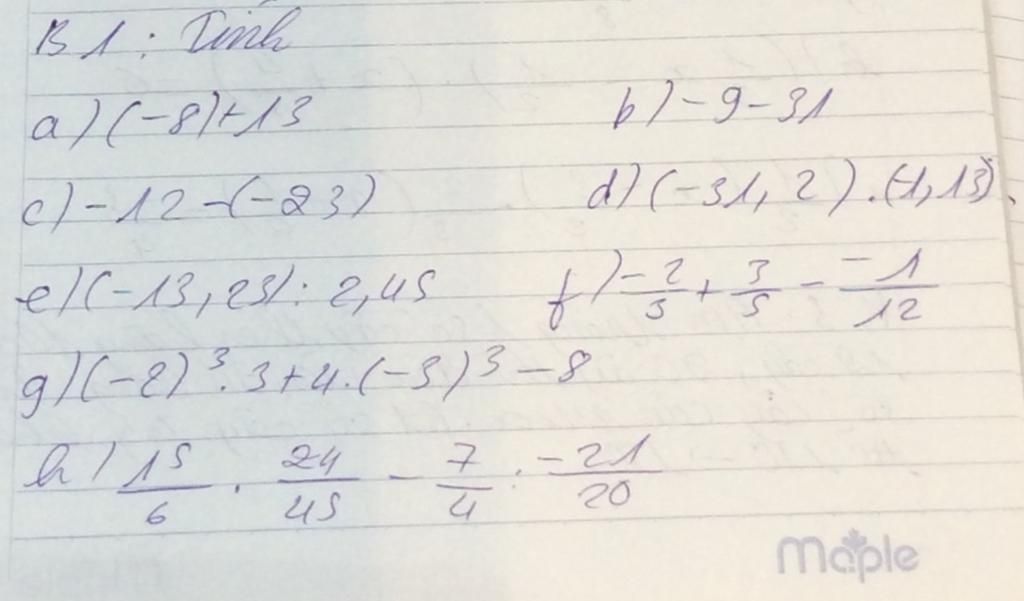 B1: Tính
a) (-8)+13 b) -9-31
c) -12-(-23) d) (-31,2).(-1,13).
e) (-13,23): 2,45 f) -2/3 + 3/5 - -1/12
g) (-2)³.3+4.(-3)³-8
h) 15/6 . 24/45 - 7/4 : -21/20
Maple